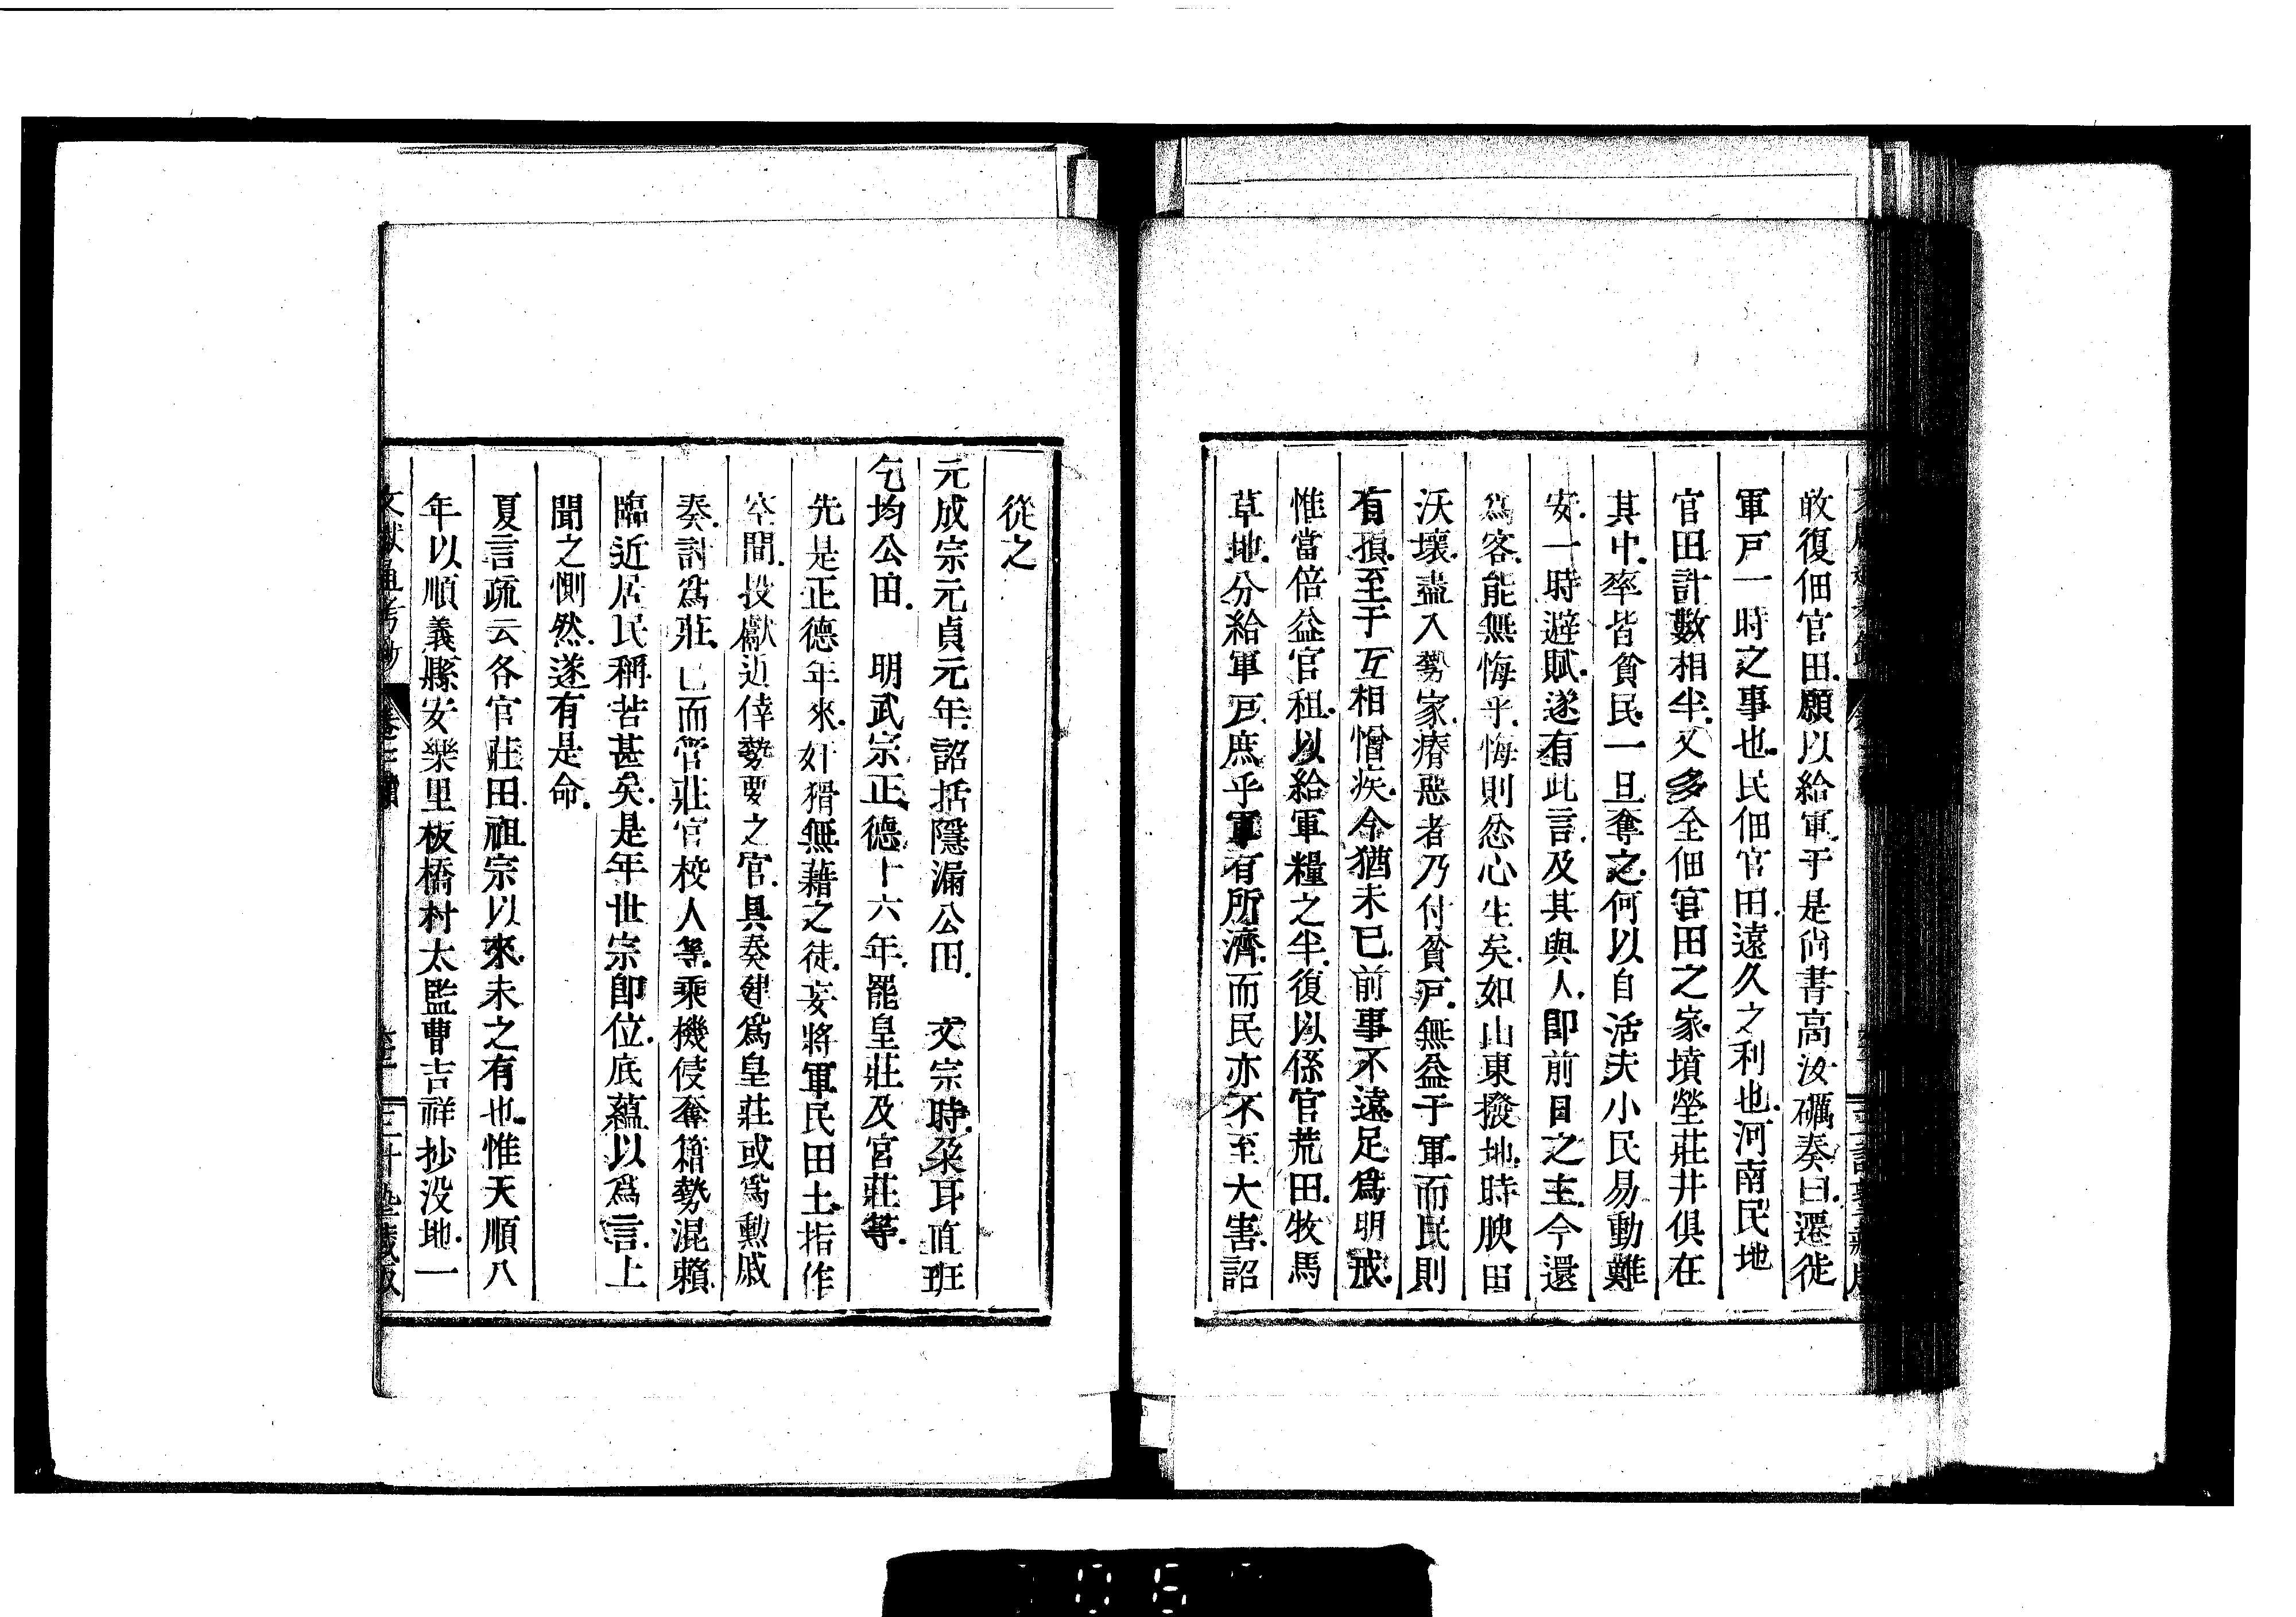 敀復佃官田願以給軍于是尚書高汝礪奏曰遷徙
軍戸一時之事也民佃官田遠久之利也河南民地
官田計數相半又多全佃官田之家墳塋莊井俱在
其中率皆貧民一旦奪之何以自活夫小民易動難
安一時避賦遂有此言及其與人即前日之主今還
爲客能無悔乎悔則忿心生矣如山東撥地時腴田
沃壤盡入勢家瘠惡者乃付貧戸無益于軍而民則
有損至于互相憎疾今猶未已前事不遠足爲明戒
惟當倍益官租以給軍糧之半復以係官荒田牧馬
草地分給軍戸庶乎軍有所濟而民亦不至大害詔
從之
元成宗元貞元年詔括隱漏公田 文宗時朶耳直班
乞均公田 明武宗正德十六年罷皇莊及官莊等
先是正德年來奸猾無藉之徒妄將軍民田土指作
空閒投獻近倖勢要之官具奏建爲皇莊或爲勳戚
奏討爲莊已而管莊官校人等乘機侵奪籍勢混賴
臨近居民稱苦甚矣是年世宗即位底蘊以爲言上
聞之惻然遂有是命
夏言疏云各官莊田祖宗以來未之有也惟天順八
年以順義縣安樂里板橋村太監曹吉祥抄没地一